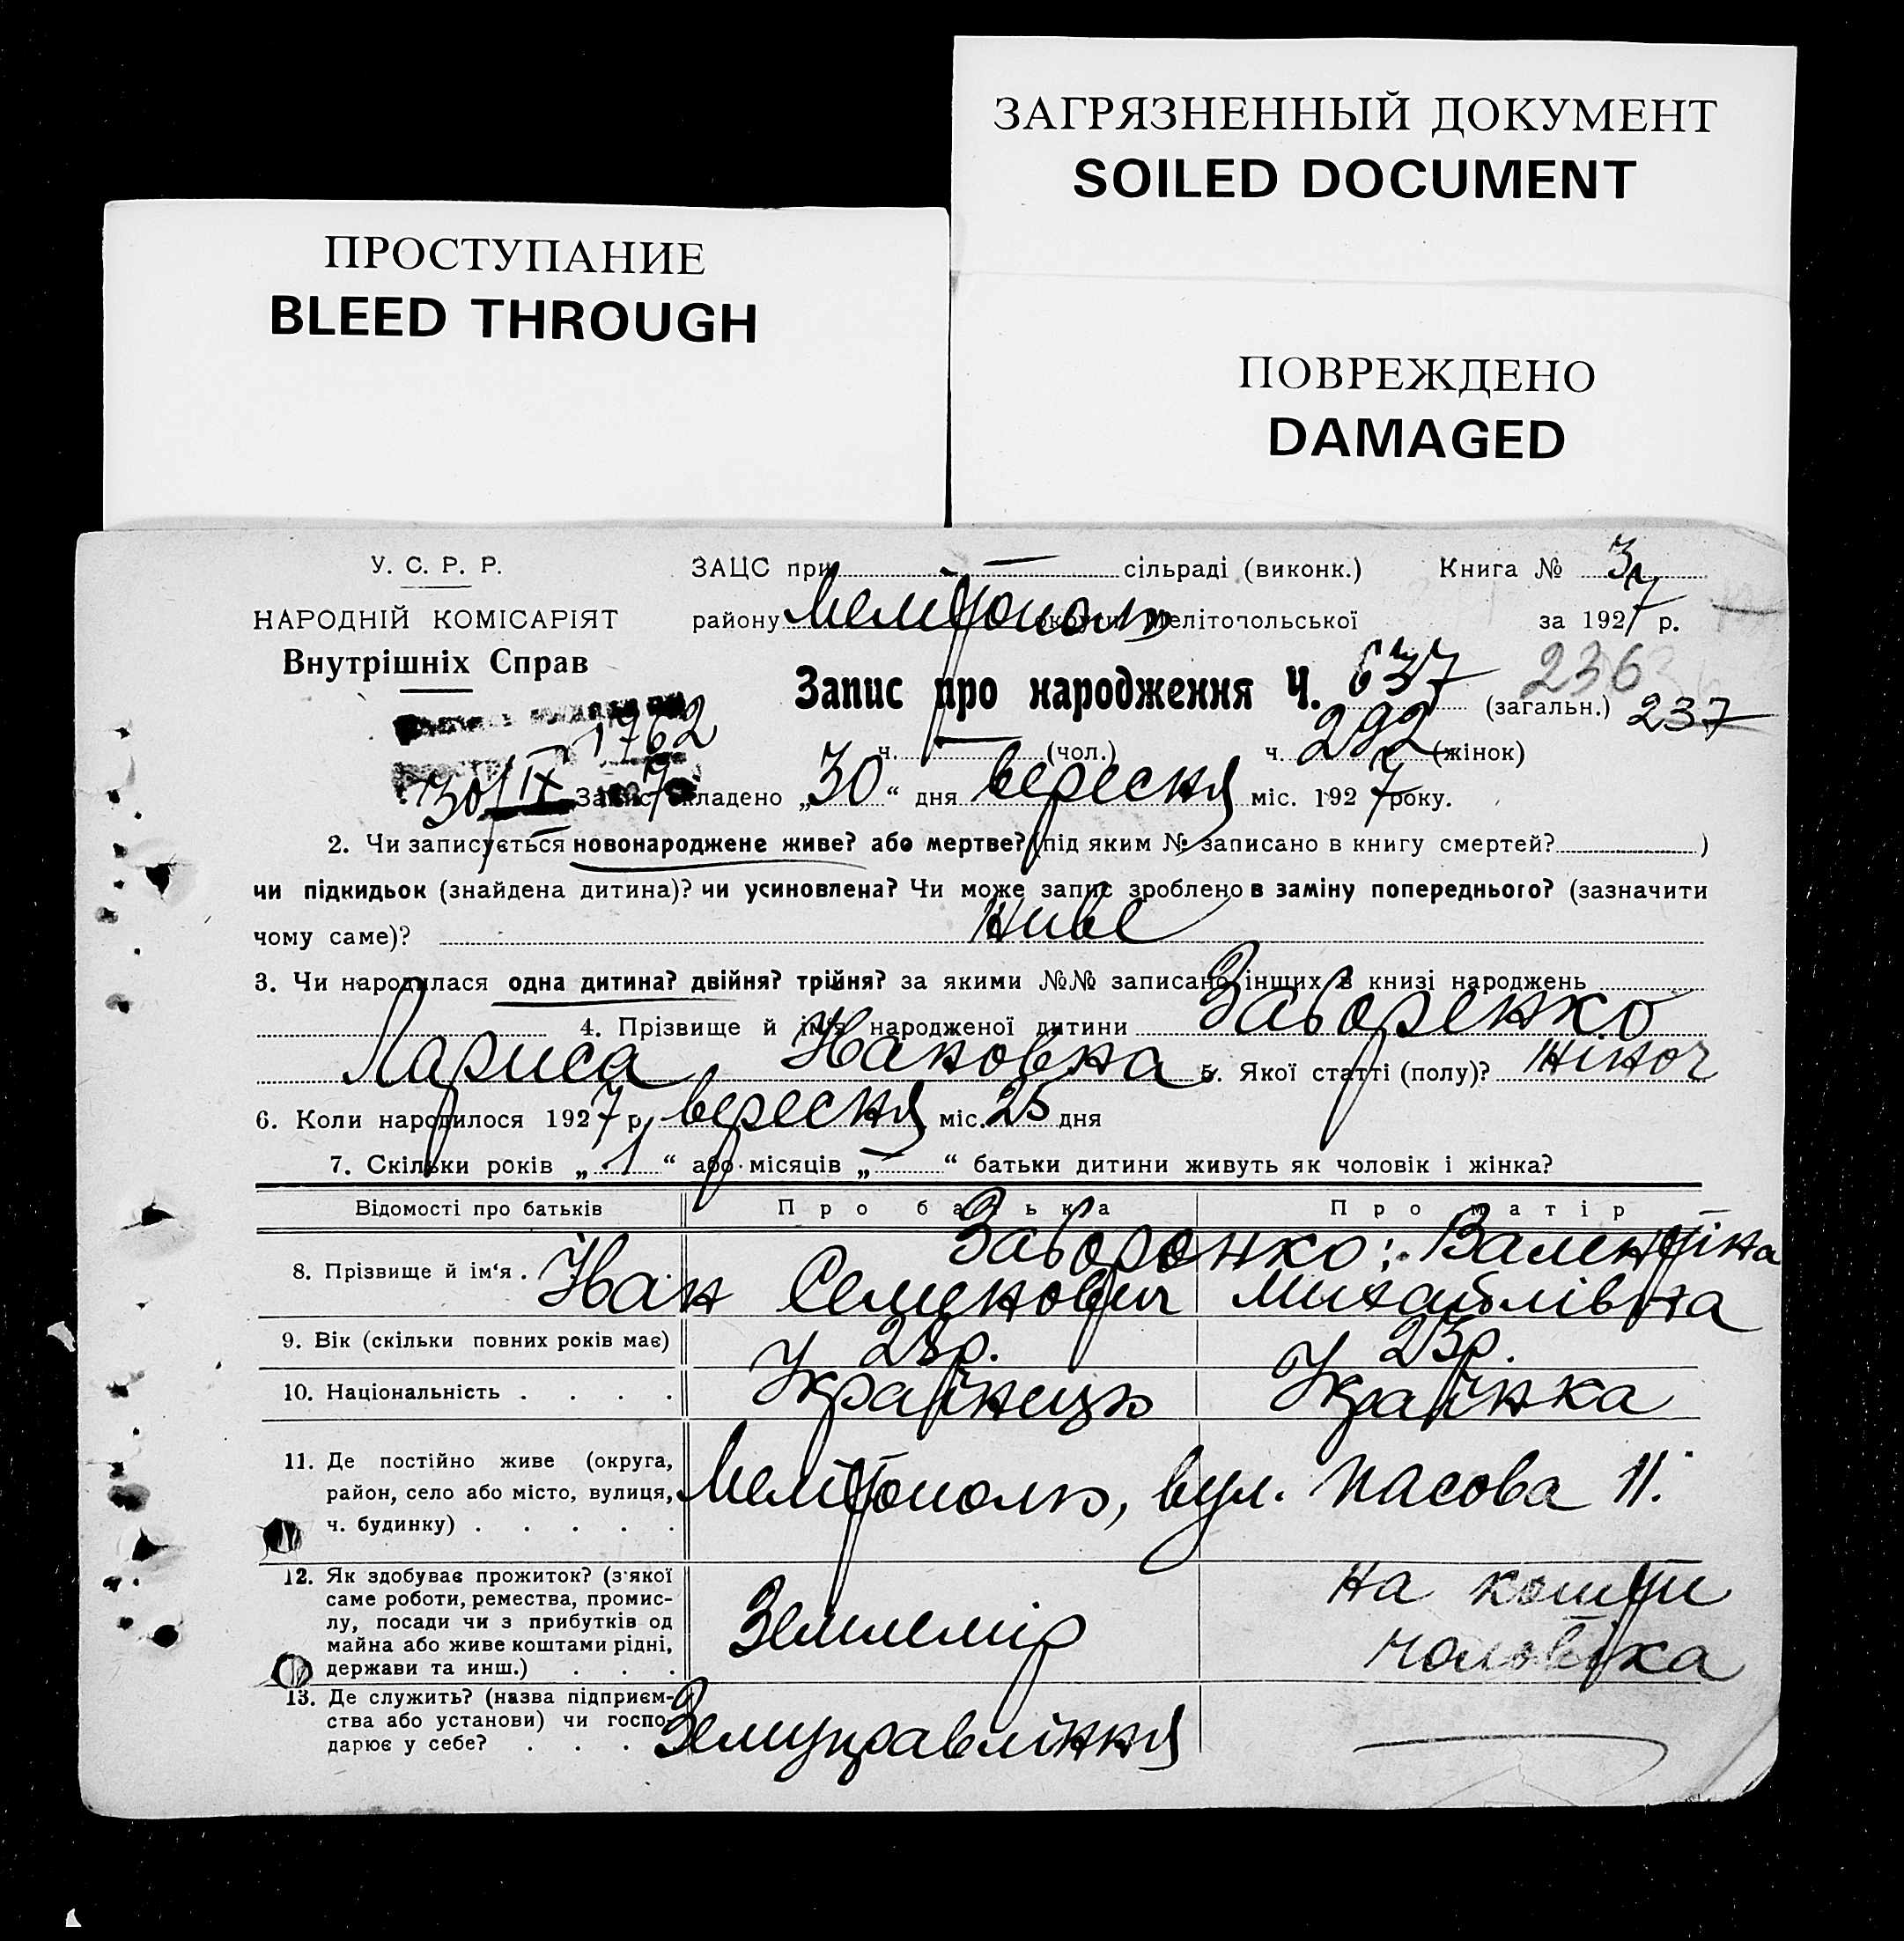 ЗАГРЯЗНЕННЫЙ ДОКУМЕНТ
SOILED DOCUMENT
ПРОСТУПАНИЕ
BLEED THROUGH
ПОВРЕЖДЕНО
DAMAGED
У. С. Р. Р.
НАРОДНІЙ КОМІСАРІЯТ
Внутрішніх Справ
ЗАЦС при — сільраді (виконк.) Книга № 3
району Мелітополь округи Мелітопольської за 1927 р.
Запис про народження Ч. 637 (загальн.) 236 237
1762
ч. — (чол.) ч. 292 (жінок)
30/IX 7 Запис складено „30“ дня вересня міс. 1927 року.
2. Чи записується новонароджене живе? або мертве? (під яким № записано в книгу смертей? )
чи підкидьок (знайдена дитина)? чи усиновлена? Чи може запис зроблено в заміну попереднього? (зазначити
чому саме)? живе
3. Чи народилася одна дитина? двійня? трійня? за якими №№ записано інших в книзі народжень
4. Прізвище й ім'я народженої дитини Заворенко
Лариса Івановна 5. Якої статті (полу)? жіноч
6. Коли народилося 1927 р. вересня міс. 25 дня
7. Скільки років „1“ або місяців „—“ батьки дитини живуть як чоловік і жінка?
Відомості про батьків Про батька Про матір
8. Прізвище й ім'я . Заворонко: Валентіна
Іван Семенович Михайлівна
9. Вік (скільки повних років має) 28р. 23р.
10. Національність . . . . Українець Українка
11. Де постійно живе (округа,
район, село або місто, вулиця,
ч. будинку) . . . . .
Мелітополь, вул. Пасова 11.
12. Як здобуває прожиток? (з'якої
саме роботи, ремества, промис-
лу, посади чи з прибутків од
майна або живе коштами рідні,
держави та инш.) . . .
Землемір
на кошти
чоловіка
13. Де служить? (назва підприєм-
ства або установи) чи госпо-
дарює у себе? . . .
Земуправління